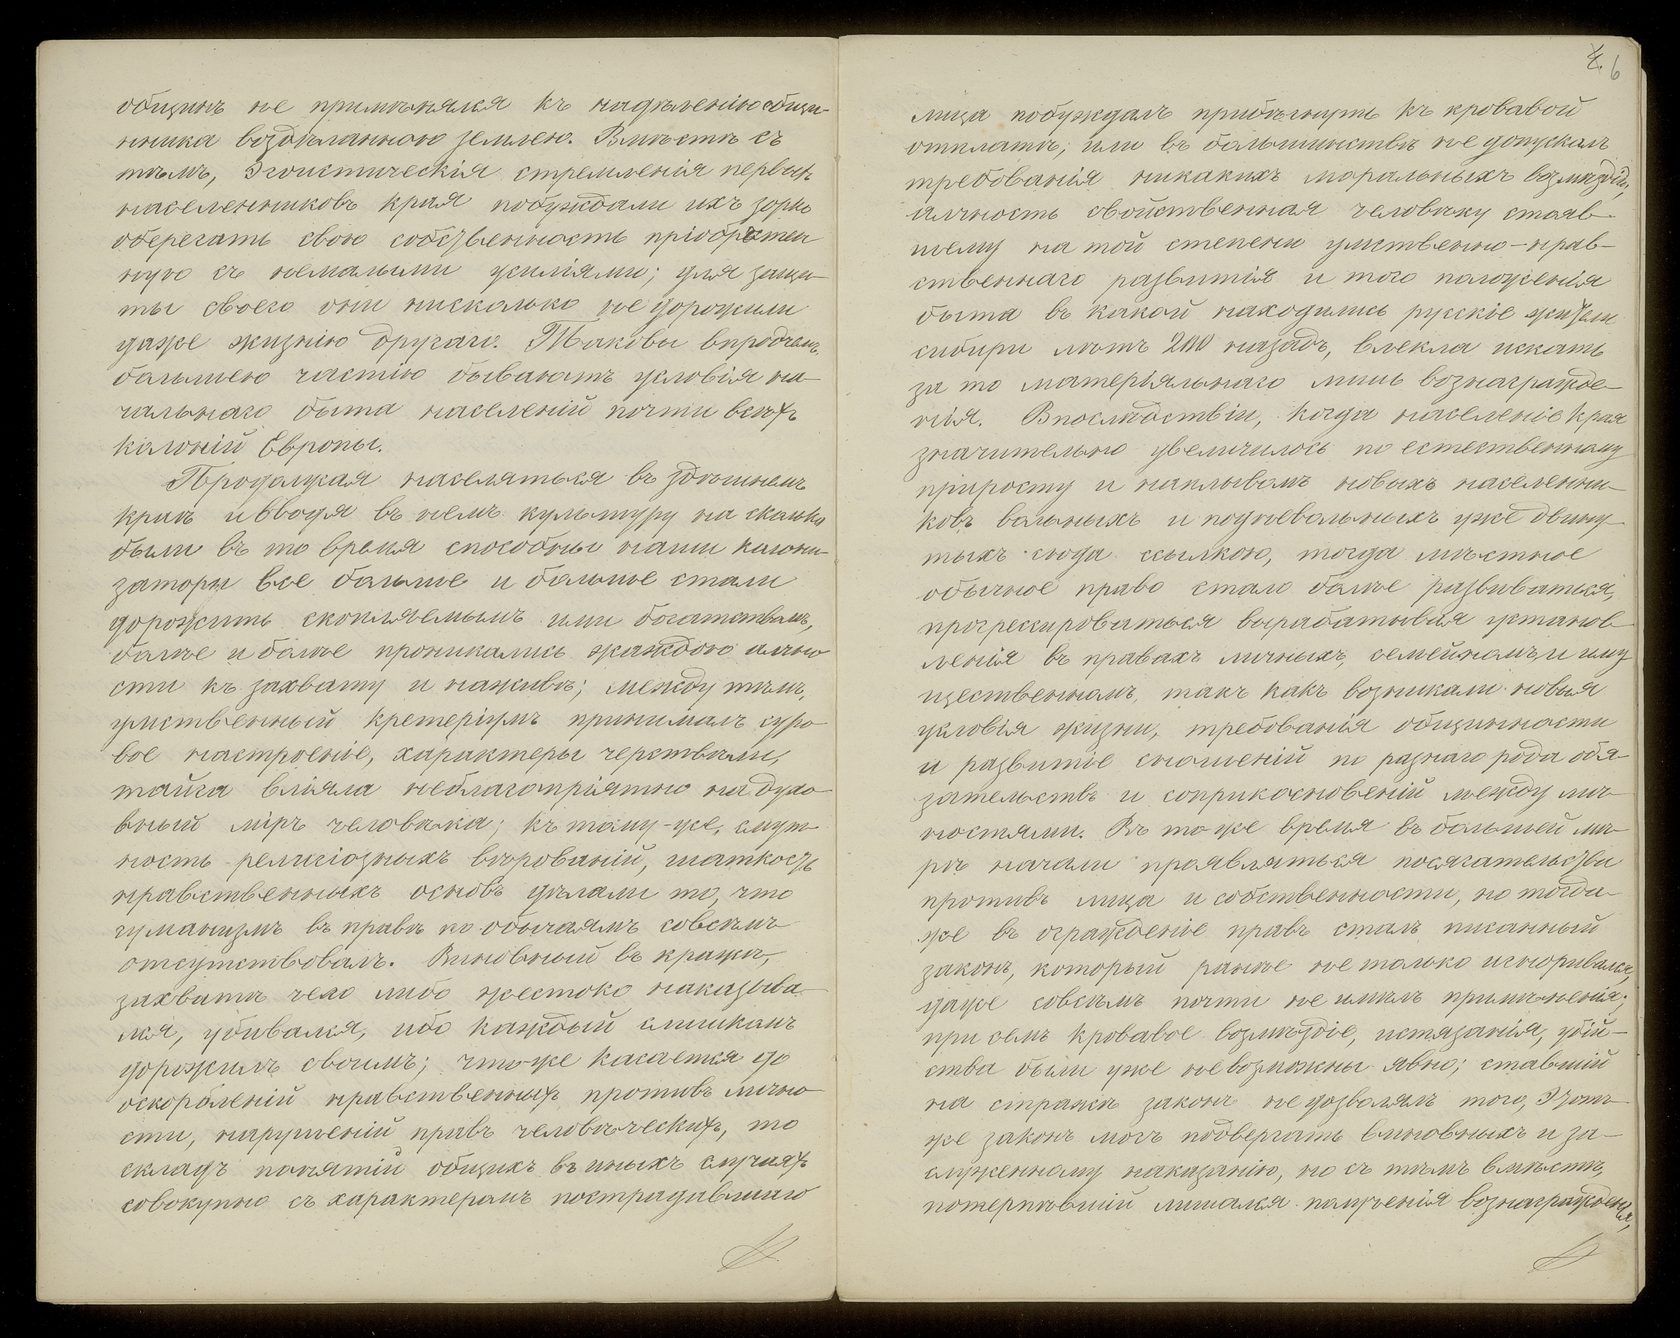 общинъ не примѣнялся къ надѣленію общи-
нника воздѣланною землею. Вмѣстѣ съ
тѣмъ, эгоистическія стремленія первых
населенниковъ края побуждали ихъ зорко
оберегать свою собственность пріобрѣтен
ную съ немалыми усиліями; для защи-
ты своего они нисколько не дорожили
даже жизнію другаго. Таковы впрочемъ,
большею частію бываютъ условія на-
чальнаго быта населеній почти всѣхъ
колоній Европы.
Продолжая населяться въ здѣшнемъ
краѣ и вводя въ немъ культуру на сколько
были въ то время способны наши колони-
заторы все больше и больше стали
дорожить скопляемымъ ими богатствомъ,
болѣе и болѣе проникались жаждою алчно
сти къ захвату и наживѣ; между тѣмъ,
умственный кретеріумъ принималъ суро
вое настроеніе, характеры черствѣли,
тайга вліяла неблагопріятно на духо-
вный міръ человѣка; къ тому-же, смут-
ность религіозныхъ вѣрованій, шаткость
нравственныхъ основъ дѣлали то, что
гуманизмъ въ правѣ по обычаямъ совсѣмъ
отсутствовалъ. Виновный въ кражѣ,
захватѣ чего либо жестоко наказыва-
лся, убивался, ибо каждый слишкомъ
дорожилъ своимъ; чтоже касается до
оскорбленій нравственныхъ противъ лично
сти, нарушеній правъ человѣческихъ, то
складъ понятій общихъ въ иныхъ случаяхъ
совокупно съ характеромъ пострадавшаго
6
лица побуждалъ прибѣгнуть къ кровавой
отплатѣ, или въ большинствѣ не допускал
требованія никакихъ моральныхъ возмездій,
алчность свойственная человѣку стояв-
шему на той степени умственно-нрав-
ственнаго развитія и того положенія
быта въ какой находились русскіе жители
сибири лѣтъ 200 назадъ, влекла искать
за то матеріяльнаго лишь вознагражде-
нія. Впослѣдствіи, когда населеніе края
значительно увеличилось по естественному
приросту и наплывомъ новыхъ населенни-
ковъ вольныхъ и подневольныхъ уже двину-
тыхъ сюда ссылкою, тогда мѣстное
обычное право стало болѣе развиваться,
прогрессироваться вырабатывая установ-
ленія въ правахъ личныхъ, семейномъ и иму
щественномъ, такъ какъ возникали новыя
условія жизни, требованія общинности
и развитіе сношеній по разнаго рода обя-
зательствъ и соприкосновеній между лич-
ностями. Въ тоже время въ большей мѣ-
рѣ начали проявляться посягательства
противъ лица и собственности, но тогда-
же въ огражденіе правъ сталъ писанный
законъ, который ранѣе не только игнорировался,
даже совсѣмъ почти не имѣлъ примѣненія;
при семъ кровавое возмѣздіе, истязанія, убій-
ства были уже невозможны явно; ставшій
на стражѣ законъ не дозволялъ того, этотъ
же законъ могъ подвергать виновныхъ и за-
служенному наказанію, но съ тѣмъ вмѣстѣ,
потерпѣвшій лишался полученія вознагражденія,